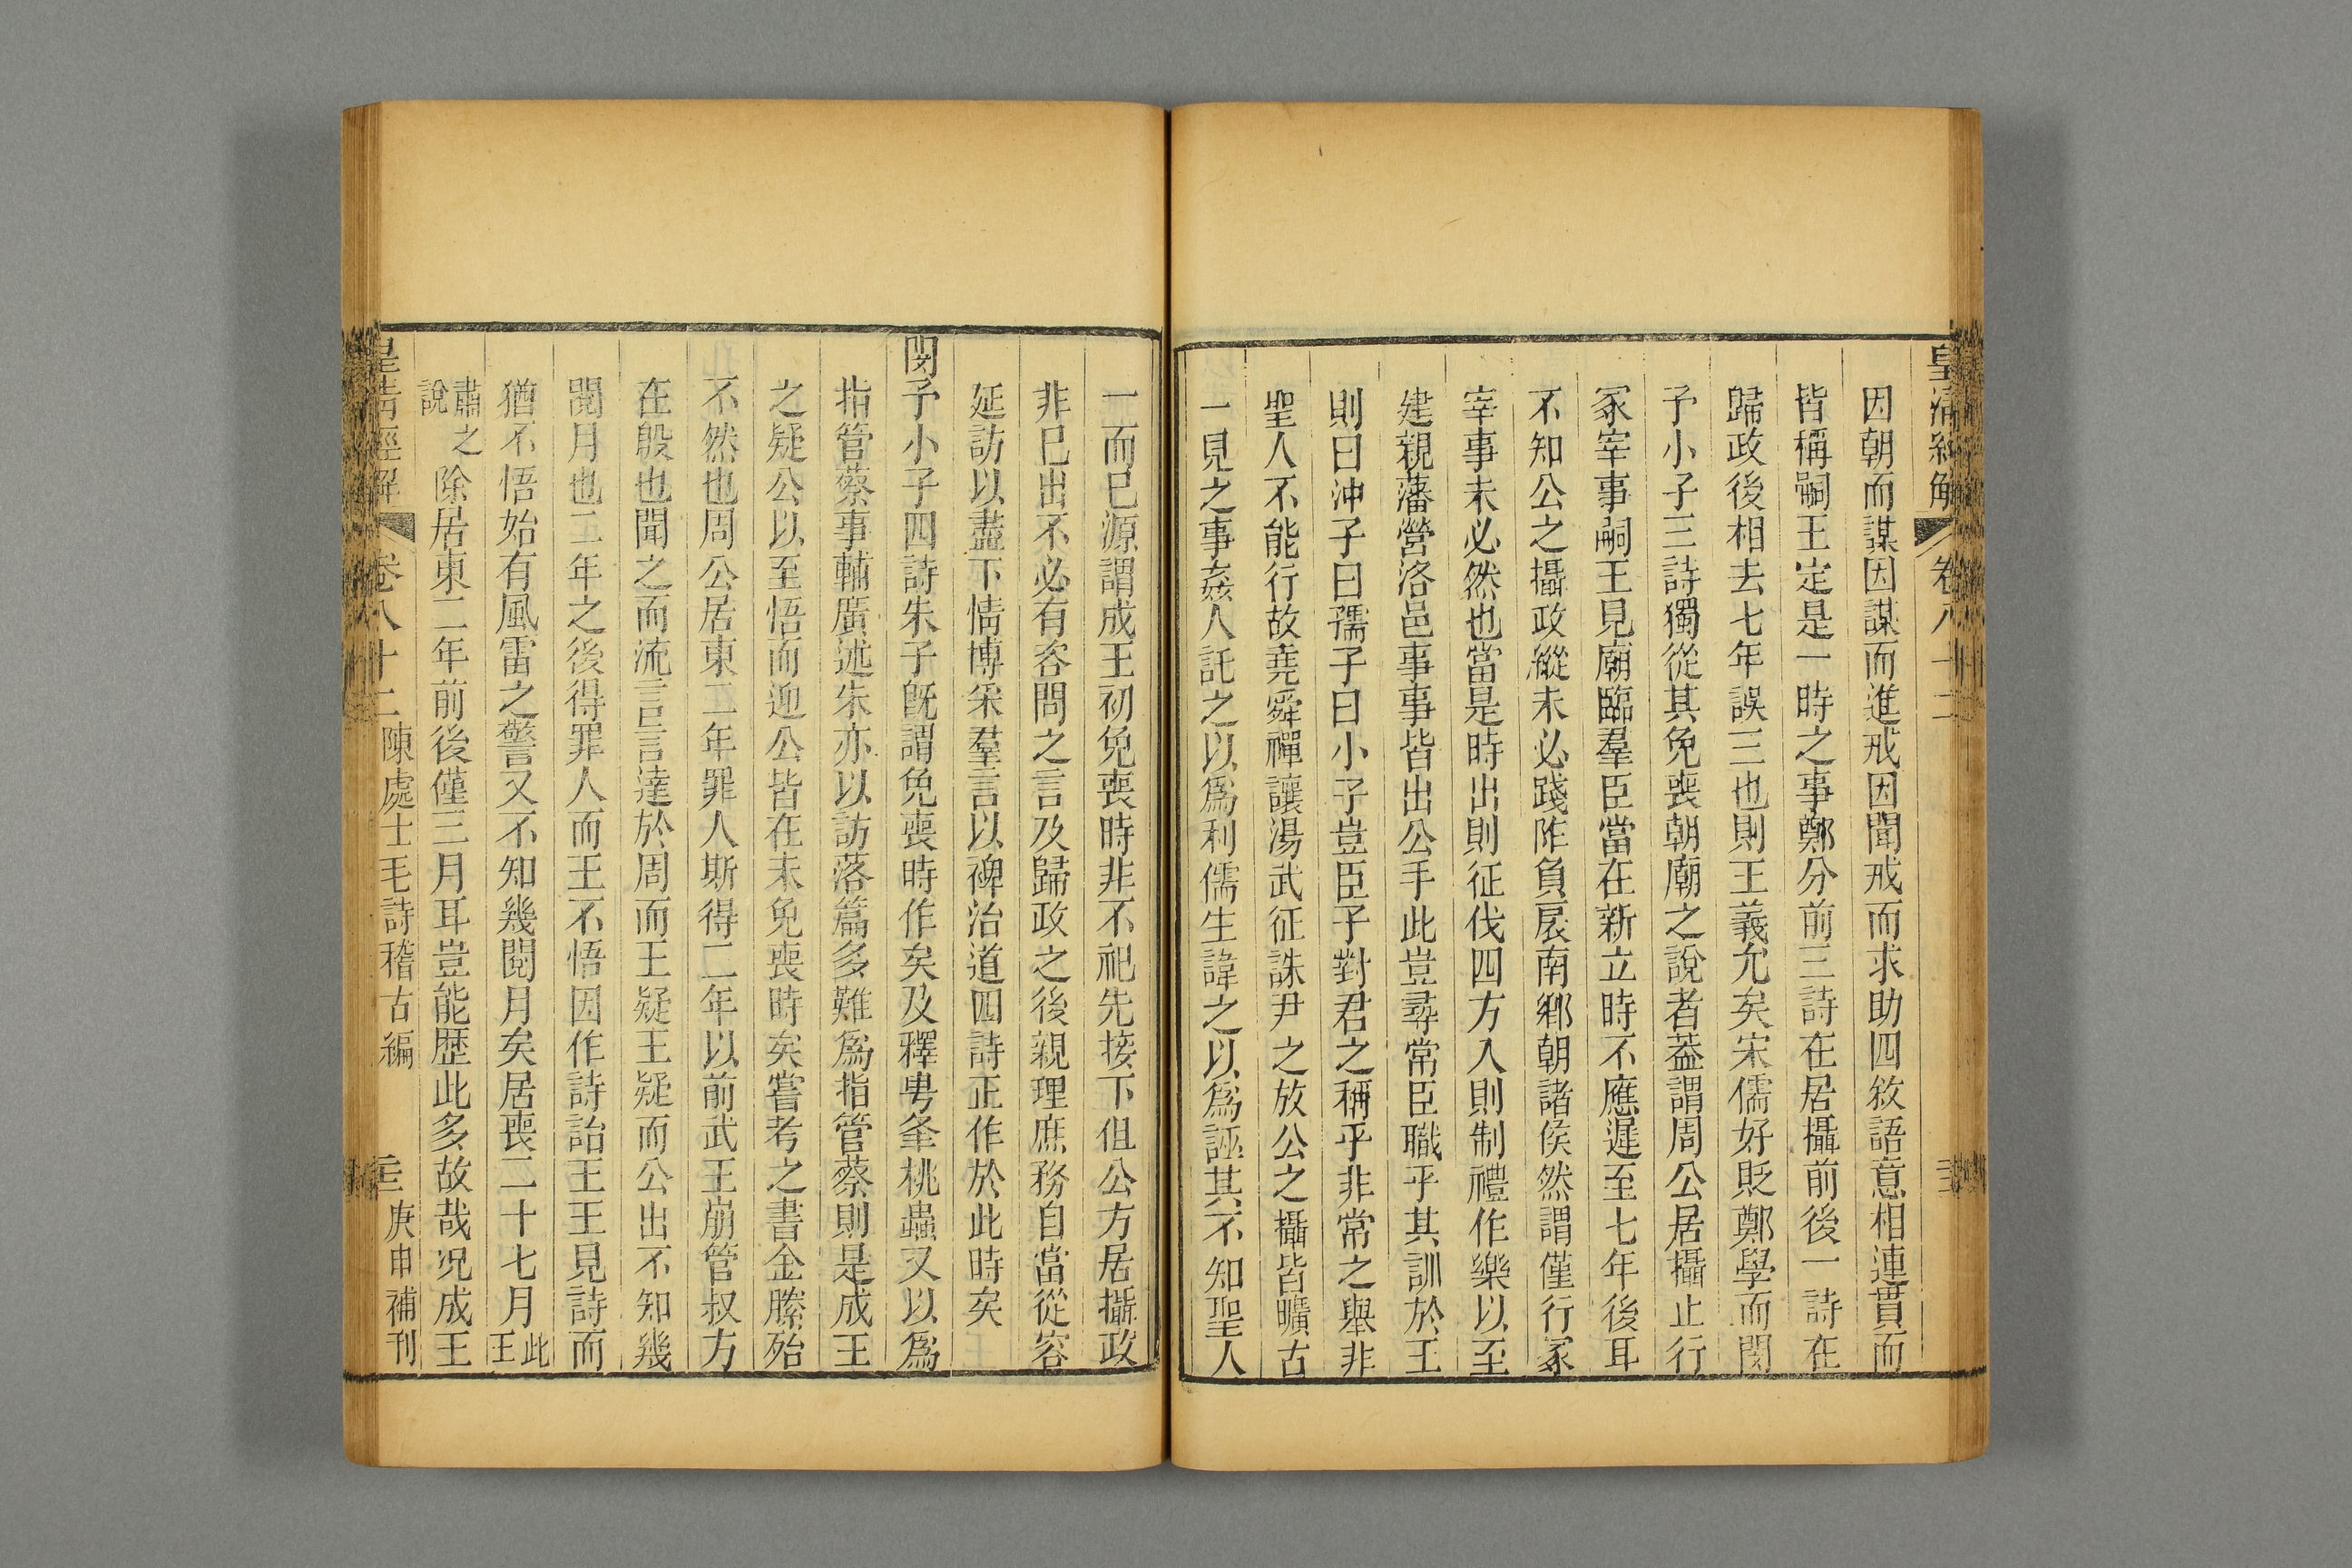 皇清經解 卷八十二
因朝而謀因謀而進戒因聞戒而求助四敘語意相連貫而
皆稱嗣王定是一時之事鄭分前三詩在居攝前後一詩在
歸政後相去七年誤三也則王義允矣宋儒好貶鄭學而閔
予小子三詩獨從其免喪朝廟之說者葢謂周公居攝止行
冢宰事嗣王見廟臨羣臣當在新立時不應遲至七年後耳
不知公之攝政縱未必踐阼負扆南鄉朝諸侯然謂僅行冢
宰事未必然也當是時出則征伐四方入則制禮作樂以至
建親藩營洛邑事事皆出公手此豈尋常臣職乎其訓於王
則曰沖子曰孺子曰小子豈臣子對君之稱乎非常之舉非
聖人不能行故堯舜禪讓湯武征誅尹之放公之攝皆曠古
一見之事姦人託之以爲利儒生諱之以爲誣其不知聖人
一而已源謂成王初免喪時非不祀先接下但公方居攝政
非已出不必有咨問之言及歸政之後親理庶務自當從容
延訪以盡下情博采羣言以裨治道四詩正作於此時矣
閔予小子四詩朱子旣謂免喪時作矣及釋甹夆桃蟲又以爲
指管蔡事輔廣述朱亦以訪落篇多難爲指管蔡則是成王
之疑公以至悟而迎公皆在未免喪時矣嘗考之書金縢殆
不然也周公居東二年罪人斯得二年以前武王崩管叔方
在殷也聞之而流言言達於周而王疑王疑而公出不知幾
閱月也二年之後得罪人而王不悟因作詩詒王王見詩而
猶不悟始有風雷之警又不知幾閱月矣居喪二十七月此王
肅之說除居東二年前後僅三月耳豈能歷此多故哉况成王
皇清經解 卷八十二 陳處士毛詩稽古編 庚申補刊